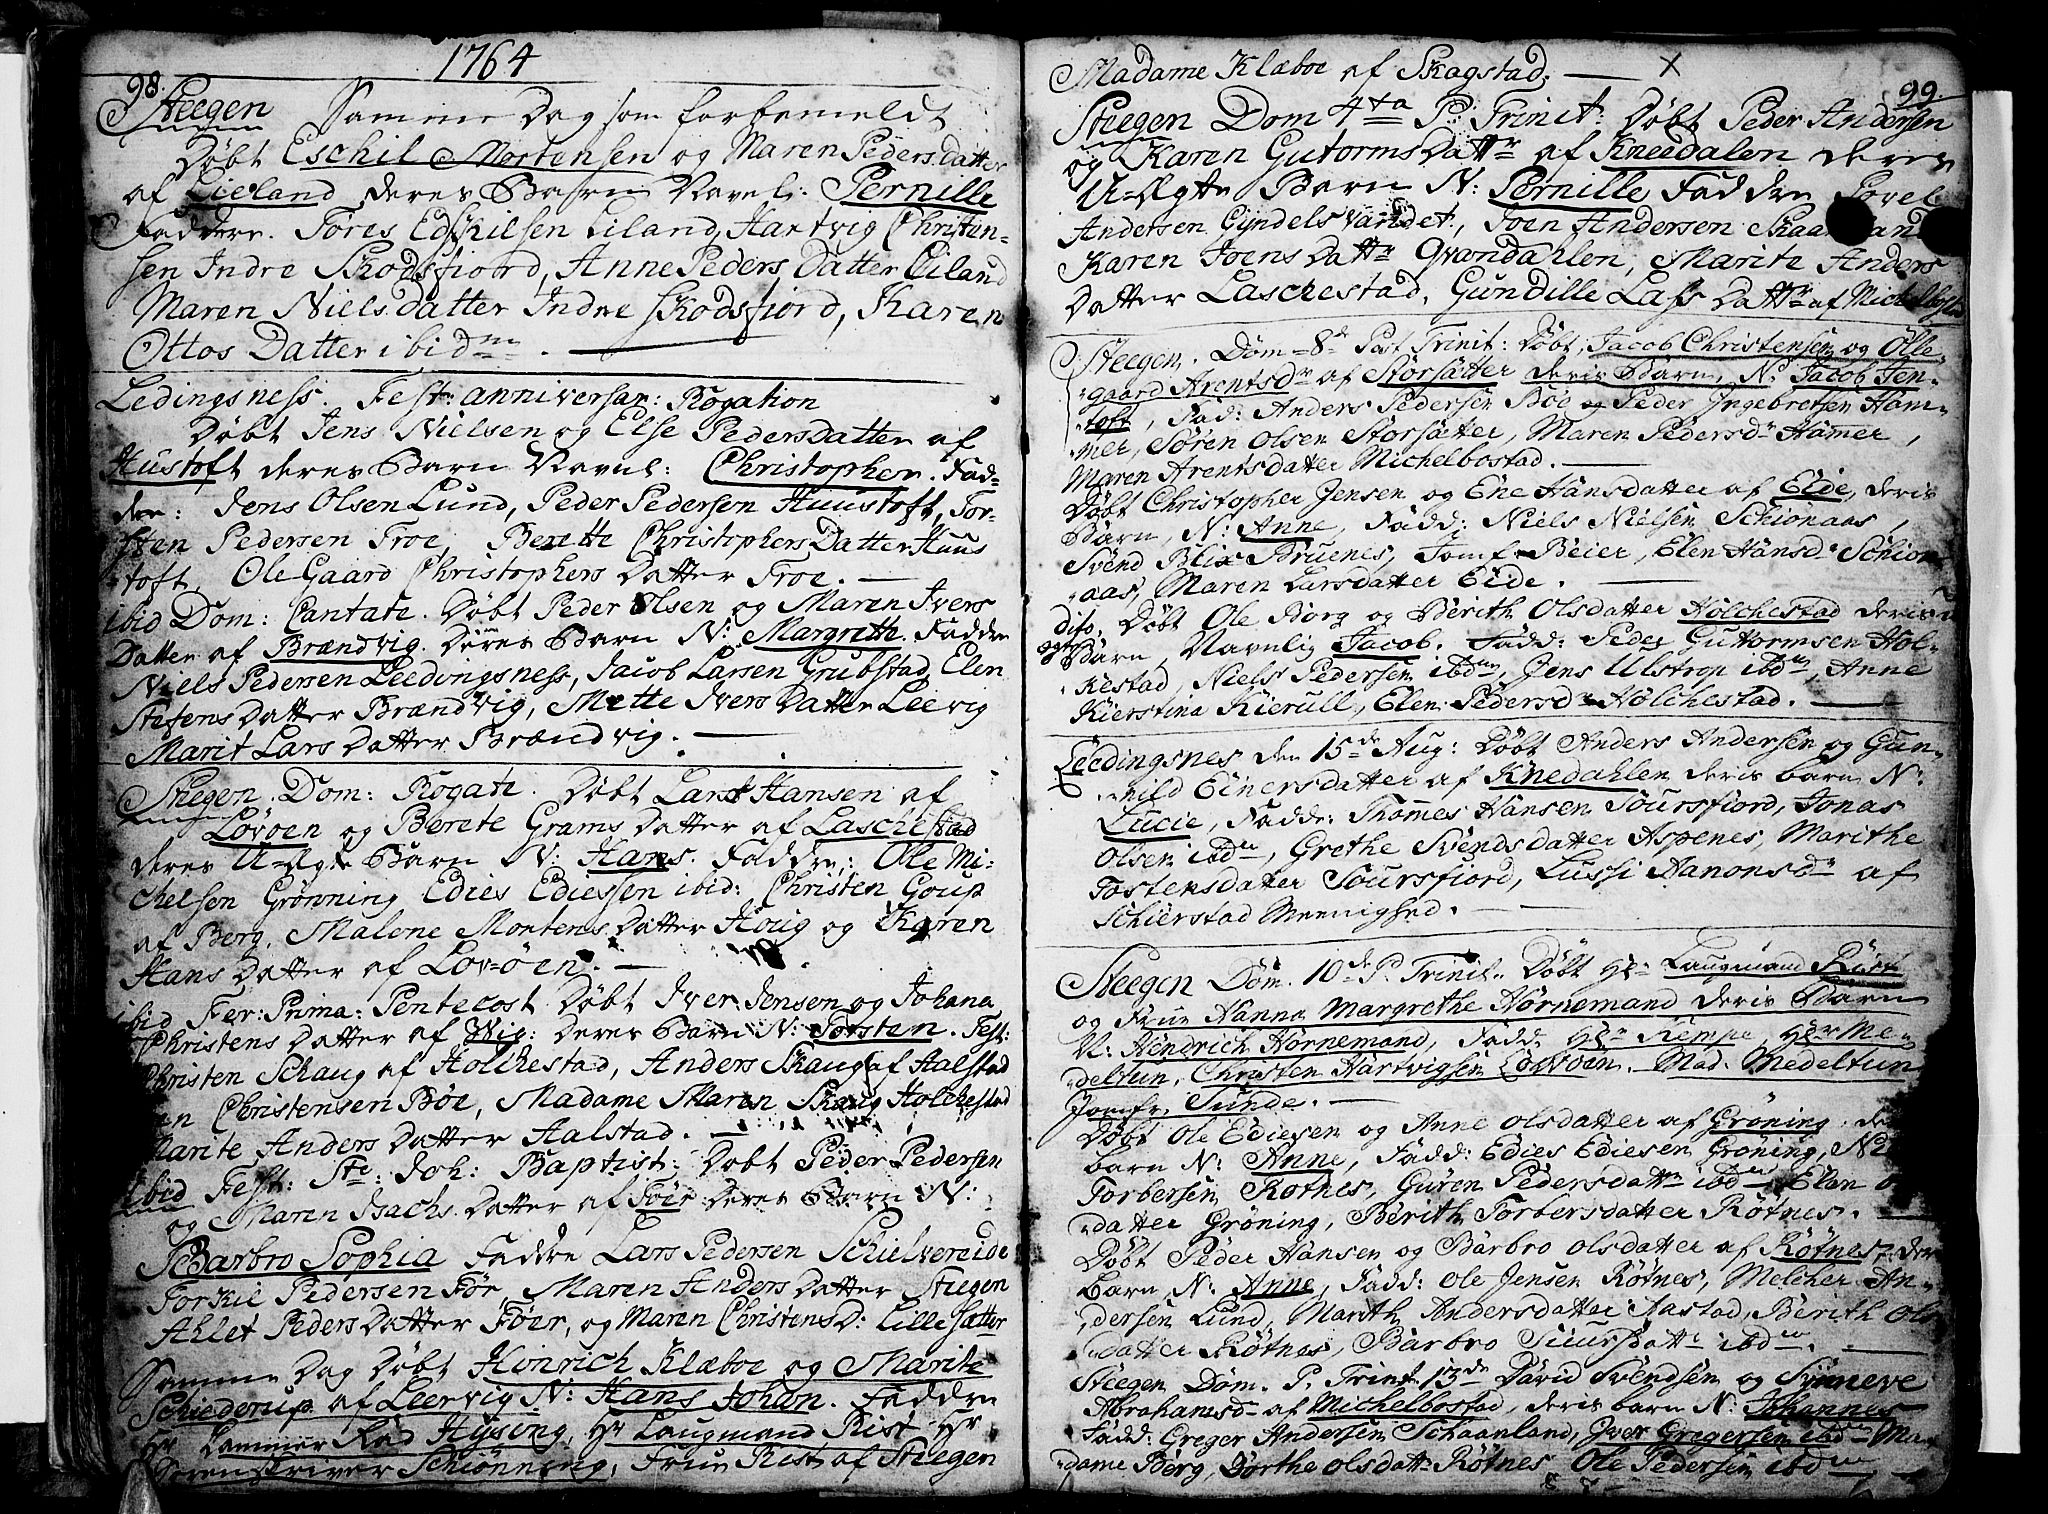 1764
98.
Steegen Samme Dag som forbemeldt
Døbt Eschil Mortensen og Maren Peders Datter
af Lieland deres Barn Navnl: Pernille
Faddere. Tores Edskilsen Eiland, Hartvig Christen-
sen Indre Skodsfiord, Anne Peders Datter Eiland
Maren Niels datter Indre Skodsfiord, Karen
Ottos Datter ibidm.
Ledingsness. Fest: anniversar: Rogation
Døbt Jens Nielsen og Else PedersDatter af
Hustoft deres Barn Navnl: Christopher. Fad-
der: Jens Olsen Lund, Peder Pedersen Huustoft, Tor-
sten Pedersen Troe, Berette Christophers Datter Huus
toft, Ole Gaard Christophers Datter Troe.
ibid Dom: Cantate. Døbt Peder Olsen og Maren Ivers
Datter af Brændvig. Deres Barn N: Margrette. Faddre
Niels Pedersen Leedingsness, Jacob Larsen Grubstad, Elen
Stefens Datter Brændvig, Mette Ivers Datter Leevig
Marit Lars Datter Brændvig.
Stegen. Dom: Rogate. Døbt Lars Hansen af
Løvøen og Berete Grams Datter af Laschestad
deres U-Ægte Barn N: Hans. Faddre: Ole Mi-
chelsen Grønning Edies Ediessen ibid: Christen Goup
af Berg, Malene Mortens Datter Houg og Karen
Hans Datter af Lovøen.
ibid Fer: Prima: Pentecost Døbt Iver Jensen og Johana
Christens Datter af Wig: Deres Barn N: Torsten. Test:
Christen Schaug af Holchestad, Anders Skaug af Halstad
Christensen Bøe, Madame Maren Skaug Holchestad
Marite Anders Datter Halstad.
ibid Fest: Ste: Joh: Baptist: Døbt Peder Pedersen
og Maren Bachs Datter af Føer Deres Barn N:
Barbro Sophia Faddre Lars Pedersen Schielvereide
Torkil Pedersen Før, Maren Anders Datter Stegen
Ahlet Peders Datter Føer, og Maren Christens D: Lille Sætter
Samme Dag Døbt Hinrich Klæboe og Marite
Schiederup af Leervig N: Hans Johan. Faddre
Hr Cammer Raad Hysing, Hr Laugmand Rist Hr
Sorenskriver Schiønning, Frue Rist af Steegen
Madame Klæboe af Skagstad. X
99.
Steegen Dom 4ta P: Trinit: Døbt Peder Andersen
og Karen GutormsDattr af Kneedalen deres
U-Ægte Barn N: Pernille Faddre Povel
Andersen Gyndelsvandet, Joen Andersen
Karen Joens Dattr Qvandahlen, Marite Anders
Datter Laschestad, Gundille Lass Dattr af Michelbostad
Steegen. Dom 8de Post Trinit: Døbt, Jacob Christensen og Olle-
gaard Arentsdr af Storsætter deris Barn, N: Jacob Jen-
toft, Fad: Anders Pedersen Bøe og Peder Ingebretsen Ham-
mer, Søren Olsen Storsætter, Maren Pedersdr Hamer,
Maren Arentsdatter Michelbostad.
Døbt Christopher Jensen og Ene Hansdatter af Eide, deris
Barn, N: Anne, Fadd: Niels Nielsen Schionaas,
Svend Blix Bruenes, Jomf: Beier, Elen Hansd: Schion-
aas, Maren Larsdatter Eide.
dito, Døbt Ole Borg og Berith Olsdatter Holchestad deris
Barn, Navnlig Jacob. Fadd: Peder Guttormsen Hol-
kestad, Niels Pedersen ibdm, Jens Ulstrop ibdm, Anne
Kierstina Kierull, Elen Pedersdr Holchestad.
Leedingsnes den 15de Aug: Døbt Anders Andersen og Gun-
nild Einersdatter af Knedahlen deris barn N:
Lucie, Fadd: Thomes Hansen Soursfiord, Jonas
Olsen ibdm, Grethe Svendsdatter Aspenes, Marithe
Tostensdatter Soursfiord, Lussi Hanonsdr af
Schierstad Meenighed.
Steegen Dom. 10de P. Trinit. Døbt Hr Laugmand Rist
og Frue Hanna Margrethe Hornemand deris Barn
N: Hendrich Hornemand, Fadd: Hr Kempe, Hr Me-
deltun, Christen Hartvigsen Lovøen. Mad. Medeltun
Jomfr. Sunde.
Døbt Ole Ediesen og Anne Olsdatter af Grøning
barn N: Anne, Fadd: Edies Ediesen Grøning,
Torbersen Rotnes, Guren Pedersdattr ibdm Elen
datter Grøning, Berith Torbersdatter Røtnes.
Døbt Peder Hansen og Barbro Olsdatter af Røtnes, der
barn N: Anne, Fadd: Ole Jensen Røtnes, Melcher An-
dersen Lund, Marith Andersdatter Aastad, Berith Ols
datter Røtnes, Barbro Siurs Dattr ibdm.
Steegen Dom. P. Trinit 13de David Svendsen og Synneve
Abrahamsdr af Michelbostad, deris barn N: Johannes
Fadd: Greger Andersen Schaanland, Iver Gregersen ibdm Ma-
dame Berg, Dorthe Olsdattr Røtnes Ole Pedersen ibdm